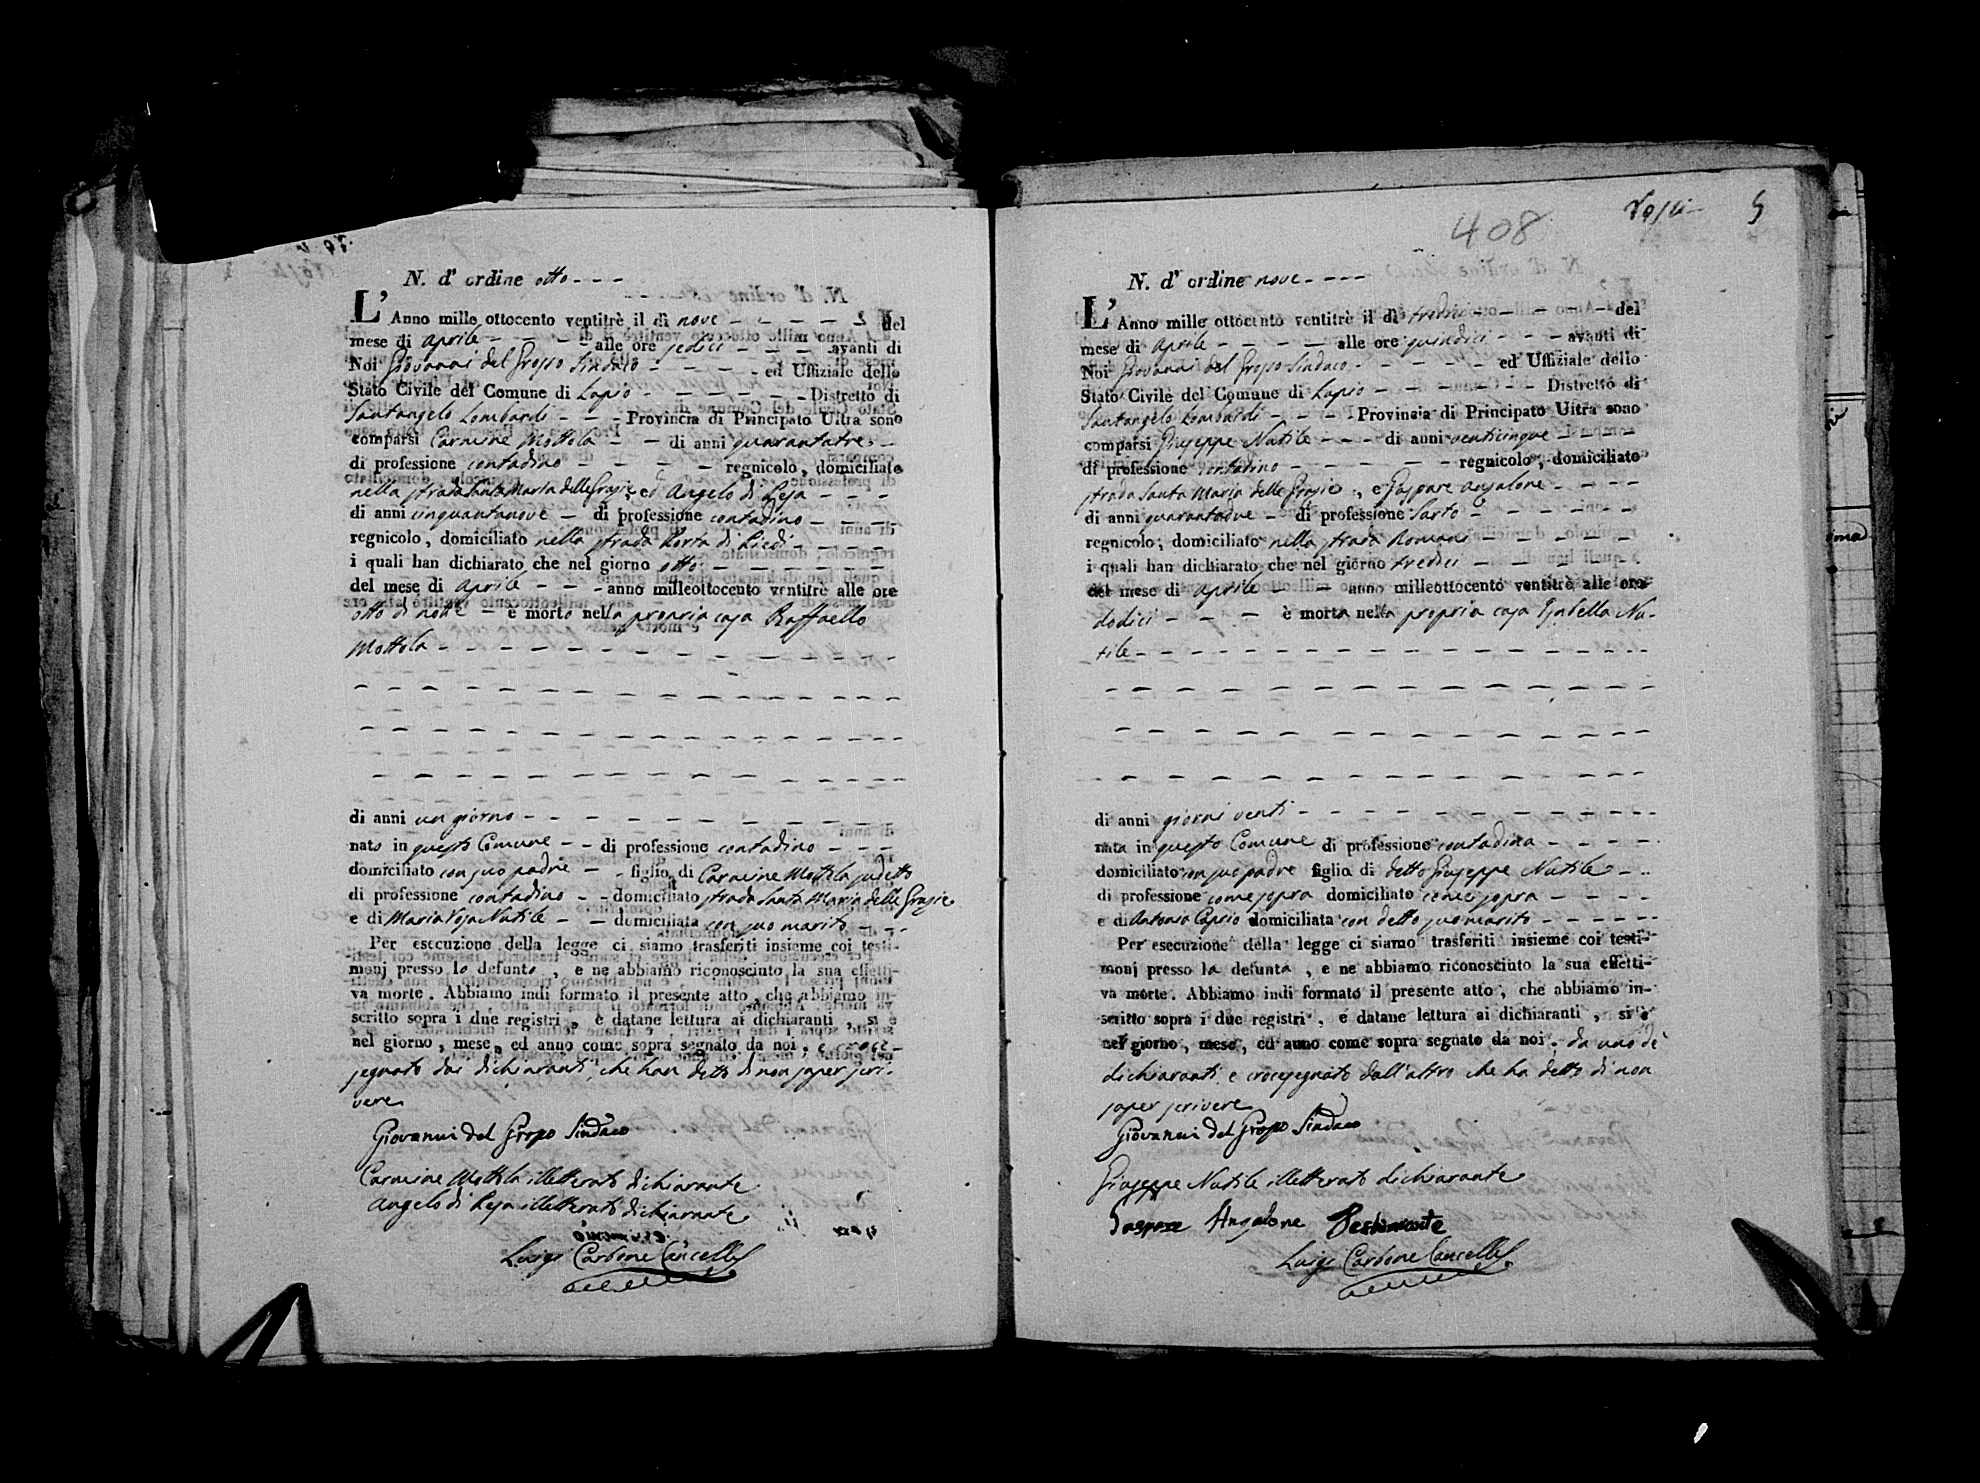 N. d' ordine otto
L' Anno mille ottocento ventitrè il dì nove del
mese di aprile alle ore sedici avanti di
Noi Giovanni del Grosso Sindaco ed Uffiziale dello
Stato Civile del Comune di Lapio Distretto di
Santangelo Lombardi Provincia di Principato Ultra sono
comparsi Carmine Mottola di anni quarantatre
di professione contadino regnicolo, domiciliato
nella strada Santa Maria delle Grazie, ed Angelo di Leja
di anni cinquantanove di professione contadino
regnicolo, domiciliato nella strada Porta di Piedi
i quali han dichiarato che nel giorno otto
del mese di aprile anno milleottocento ventitrè alle ore
otto di notte è morto nella propria casa Raffaello
Mottola
di anni un giorno
nato in questo Comune di professione contadino
domiciliato con suo padre figlio di Carmine Mottola sudetto
di professione contadino domiciliato strada Santa Maria delle Grazie
e di Maria Rosa Nutile domiciliata con suo marito
Per esecuzione della legge ci siamo trasferiti insieme coi testi-
monj presso lo defunto, e ne abbiamo riconosciuto la sua effetti-
va morte. Abbiamo indi formato il presente atto, che abbiamo in-
scritto sopra i due registri, e datane lettura ai dichiaranti, si è
nel giorno, mese, ed anno come sopra segnato da noi, e croce-
segnato dai dichiaranti, che han detto di non saper scri-
vere
Giovanni del Grosso Sindaco
Carmine Mottola illetterato dichiarante
Angelo di Leja illetterato dichiarante
Luigi Carbone Cancelle
408
5
N. d' ordine nove
L' Anno mille ottocento ventitrè il dì tredici del
mese di aprile alle ore quindici avanti di
Noi Giovanni del Grosso Sindaco ed Uffiziale dello
Stato Civile del Comune di Lapio Distretto di
Santangelo Lombardi Provincia di Principato Ultra sono
comparsi Giuseppe Nutile di anni venticinque
di professione contadino regnicolo, domiciliato
strada Santa Maria delle Grazie, e Gaspare Anzalone
di anni quarantadue di professione Sarto
regnicolo, domiciliato nella strada Romani
i quali han dichiarato che nel giorno tredici
del mese di aprile anno milleottocento ventitrè alle ore
dodici è morta nella propria casa Isabella Nu-
tile
di anni giorni venti
nata in questo Comune di professione contadina
domiciliato con suo padre figlia di detto Giuseppe Nutile
di professione come sopra domiciliato come sopra
e di Antonia Caprio domiciliata con detto suo marito
Per esecuzione della legge ci siamo trasferiti insieme coi testi-
monj presso la defunta, e ne abbiamo riconosciuto la sua effetti-
va morte. Abbiamo indi formato il presente atto, che abbiamo in-
scritto sopra i due registri, e datane lettura ai dichiaranti, si è
nel giorno, mese, ed anno come sopra segnato da noi, da uno de'
dichiaranti, e crocesegnato dall'altro che ha detto di non
saper scrivere
Giovanni del Grosso Sindaco
Giuseppe Nutile illetterato dichiarante
Gaspare Anzalone Testimonte
Luigi Carbone Cancelle